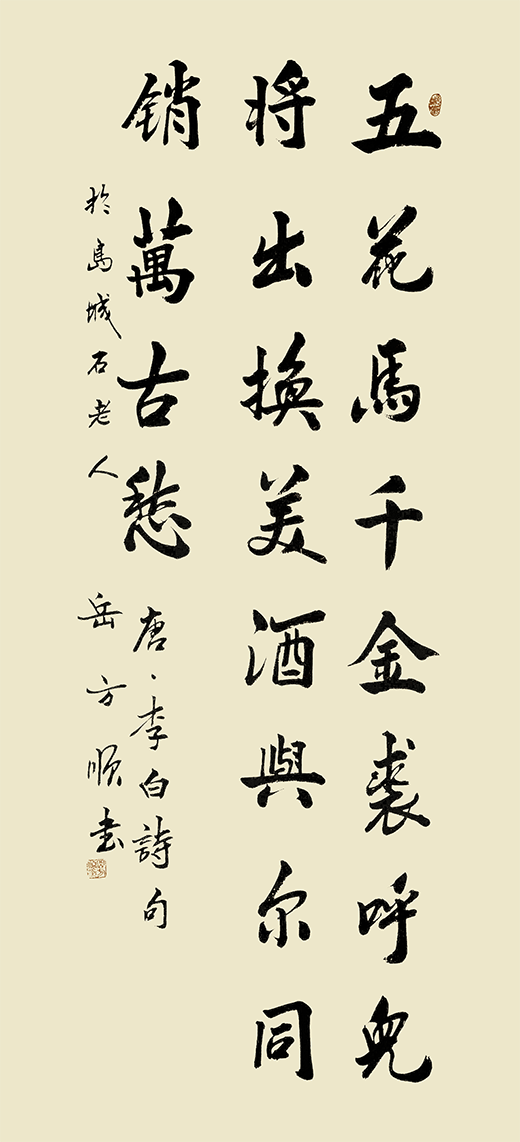 五花馬千金裘呼兒
將出換美酒與尔同
銷萬古愁
唐、李白詩句
於島城石老人
岳方順书